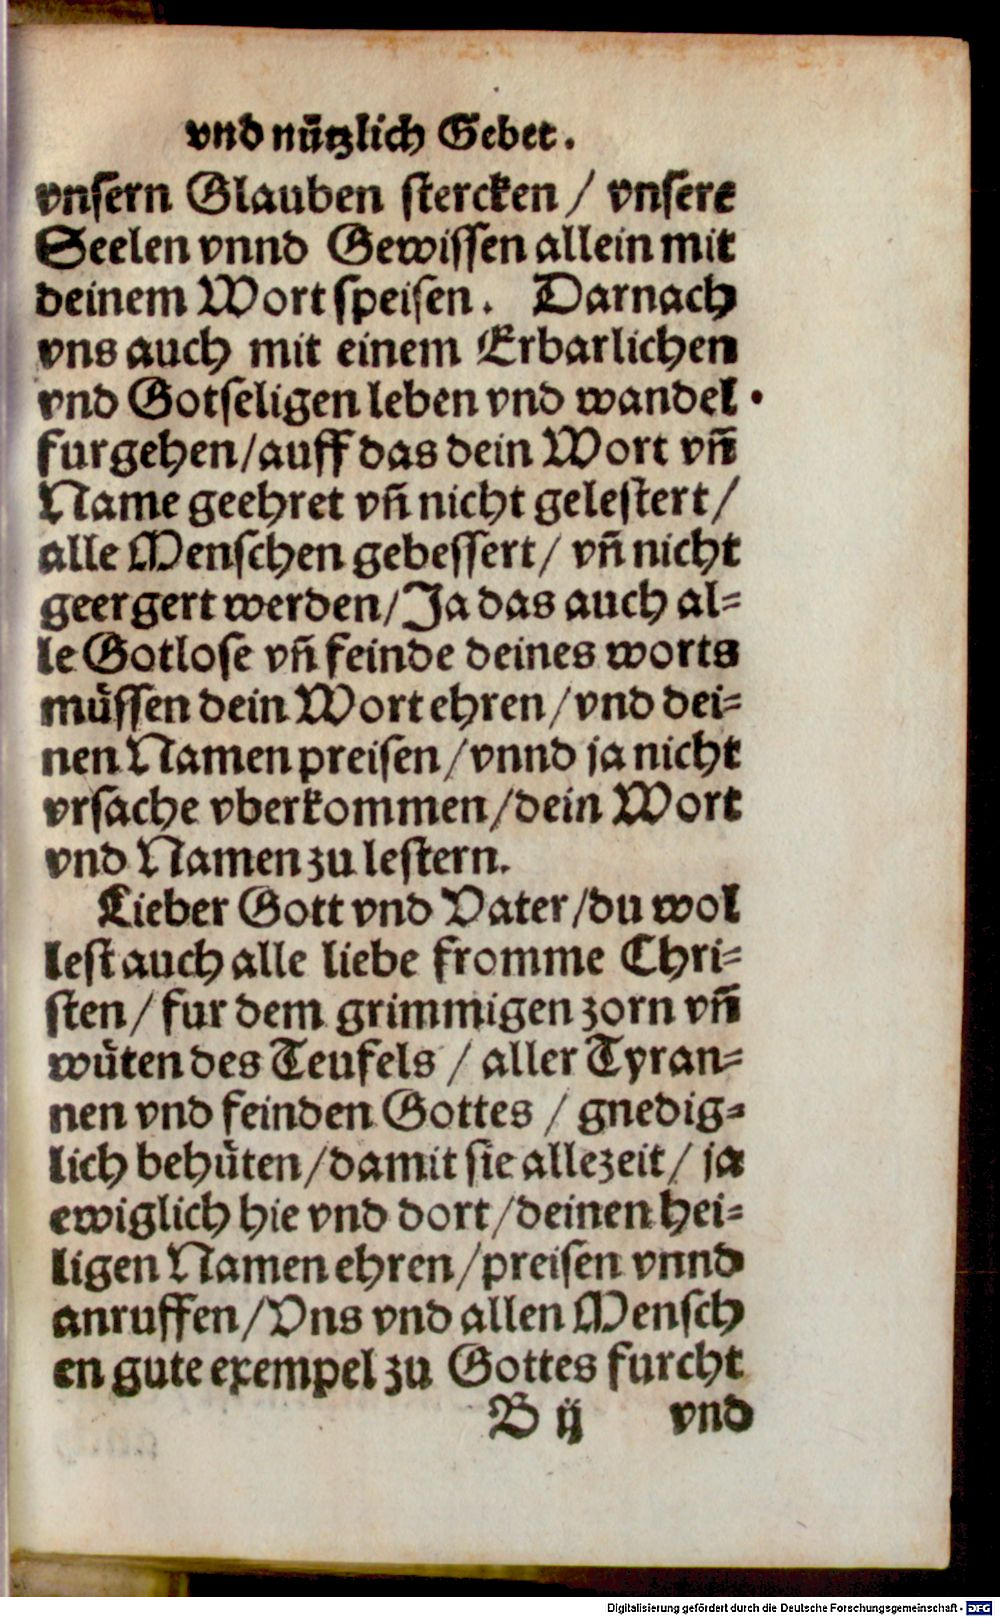 vnd nützlich Gebet.
vnsern Glauben stercken / vnsere
Seelen vnnd Gewissen allein mit
deinem Wort speisen. Darnach
vns auch mit einem Erbarlichen
vnd Gotseligen leben vnd wandel
furgehen/auff das dein Wort vñ
Name geehret vñ nicht gelestert/
alle Menschen gebessert/ vñ nicht
geergert werden/Ja das auch al=
le Gotlose vñ feinde deines worts
müssen dein Wort ehren/vnd dei=
nen Namen preisen/vnnd ja nicht
vrsache vberkommen/dein Wort
vnd Namen zu lestern.
Lieber Gott vnd Vater/du wol
lest auch alle liebe fromme Chri=
sten/ fur dem grimmigen zorn vñ
wüten des Teufels / aller Tyran=
nen vnd feinden Gottes / gnedig=
lich behüten/damit sie allezeit/ ja
ewiglich hie vnd dort/deinen hei=
ligen Namen ehren/preisen vnnd
anruffen/Vns vnd allen Mensch
en gute exempel zu Gottes furcht
B ij vnd
Digitalisierung gefördert durch die Deutsche Forschungsgemeinschaft - DFG